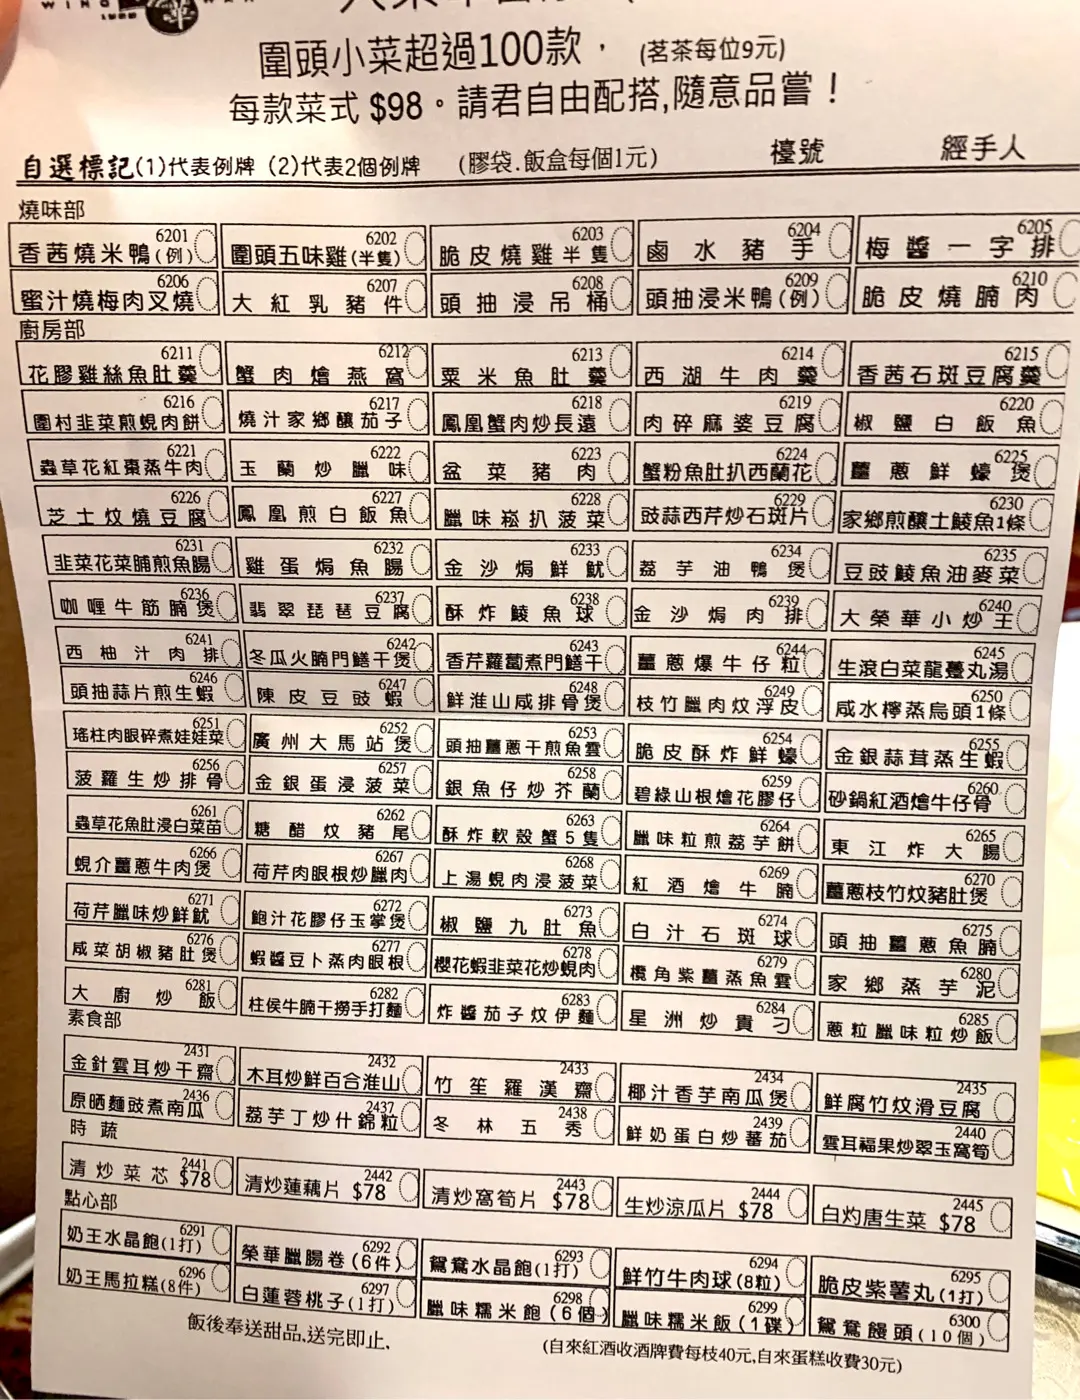 圍頭小菜超過100款，(茗茶每位9元)
每款菜式 $98。請君自由配搭,隨意品嘗！
自選標記(1)代表例牌 (2)代表2個例牌 (膠袋.飯盒每個1元) 檯號 經手人
燒味部
6201 香茜燒米鴨(例) 6202 圍頭五味雞(半隻) 6203 脆皮燒雞半隻 6204 鹵水豬手 6205 梅醬一字排
6206 蜜汁燒梅肉叉燒 6207 大紅乳豬件 6208 頭抽浸吊桶 6209 頭抽浸米鴨(例) 6210 脆皮燒腩肉
廚房部
6211 花膠雞絲魚肚羹 6212 蟹肉燴燕窩 6213 粟米魚肚羹 6214 西湖牛肉羹 6215 香茜石斑豆腐羹
6216 圍村韭菜煎蜆肉餅 6217 燒汁家鄉釀茄子 6218 鳳凰蟹肉炒長遠 6219 肉碎麻婆豆腐 6220 椒鹽白飯魚
6221 蟲草花紅棗蒸牛肉 6222 玉蘭炒臘味 6223 盆菜豬肉 6224 蟹粉魚肚扒西蘭花 6225 薑蔥鮮蠔煲
6226 芝士炆燒豆腐 6227 鳳凰煎白飯魚 6228 臘味崧扒菠菜 6229 豉蒜西芹炒石斑片 6230 家鄉煎釀土鯪魚1條
6231 韭菜花菜脯煎魚腸 6232 雞蛋焗魚腸 6233 金沙焗鮮魷 6234 荔芋油鴨煲 6235 豆豉鯪魚油麥菜
6236 咖喱牛筋腩煲 6237 翡翠琵琶豆腐 6238 酥炸鯪魚球 6239 金沙焗肉排 6240 大榮華小炒王
6241 西柚汁肉排 6242 冬瓜火腩門鱔干煲 6243 香芹蘿蔔煮門鱔干 6244 薑蔥爆牛仔粒 6245 生滾白菜龍躉丸湯
6246 頭抽蒜片煎生蝦 6247 陳皮豆豉蝦 6248 鮮淮山咸排骨煲 6249 枝竹臘肉炆浮皮 6250 咸水檸蒸烏頭1條
6251 瑤柱肉眼碎煮娃娃菜 6252 廣州大馬站煲 6253 頭抽薑蔥干煎魚雲 6254 脆皮酥炸鮮蠔 6255 金銀蒜茸蒸生蝦
6256 菠蘿生炒排骨 6257 金銀蛋浸菠菜 6258 銀魚仔炒芥蘭 6259 碧綠山根燴花膠仔 6260 砂鍋紅酒燴牛仔骨
6261 蟲草花魚肚浸白菜苗 6262 糖醋炆豬尾 6263 酥炸軟殼蟹5隻 6264 臘味粒煎荔芋餅 6265 東江炸大腸
6266 蜆介薑蔥牛肉煲 6267 荷芹肉眼根炒臘肉 6268 上湯蜆肉浸菠菜 6269 紅酒燴牛腩 6270 薑蔥枝竹炆豬肚煲
6271 荷芹臘味炒鮮魷 6272 鮑汁花膠仔玉掌煲 6273 椒鹽九肚魚 6274 白汁石斑球 6275 頭抽薑蔥魚腩
6276 咸菜胡椒豬肚煲 6277 蝦醬豆卜蒸肉眼根 6278 櫻花蝦韭菜花炒蜆肉 6279 欖角紫薑蒸魚雲 6280 家鄉蒸芋泥
6281 大廚炒飯 6282 柱侯牛腩干撈手打麵 6283 炸醬茄子炆伊麵 6284 星洲炒貴刁 6285 蔥粒臘味粒炒飯
素食部
2431 金針雲耳炒干齋 2432 木耳炒鮮百合淮山 2433 竹笙羅漢齋 2434 椰汁香芋南瓜煲 2435 鮮腐竹炆滑豆腐
2436 原晒麵豉煮南瓜 2437 荔芋丁炒什錦粒 2438 冬林五秀 2439 鮮奶蛋白炒蕃茄 2440 雲耳福果炒翠玉窩筍
時蔬
2441 清炒菜芯 $78 2442 清炒蓮藕片 $78 2443 清炒窩筍片 $78 2444 生炒涼瓜片 $78 2445 白灼唐生菜 $78
點心部
6291 奶王水晶飽(1打) 6292 榮華臘腸卷(6件) 6293 鴛鴦水晶飽(1打) 6294 鮮竹牛肉球(8粒) 6295 脆皮紫薯丸(1打)
6296 奶王馬拉糕(8件) 6297 白蓮蓉桃子(1打) 6298 臘味糯米飽(6個) 6299 臘味糯米飯(1碟) 6300 鴛鴦饅頭(10個)
飯後奉送甜品,送完即止. (自來紅酒收酒牌費每枝40元,自來蛋糕收費30元)